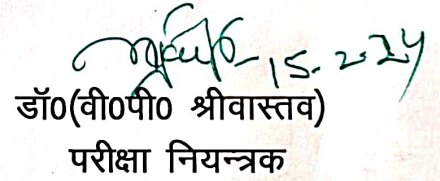 15.2.24
डॉ0(वी0पी0 श्रीवास्तव)
परीक्षा नियन्त्रक